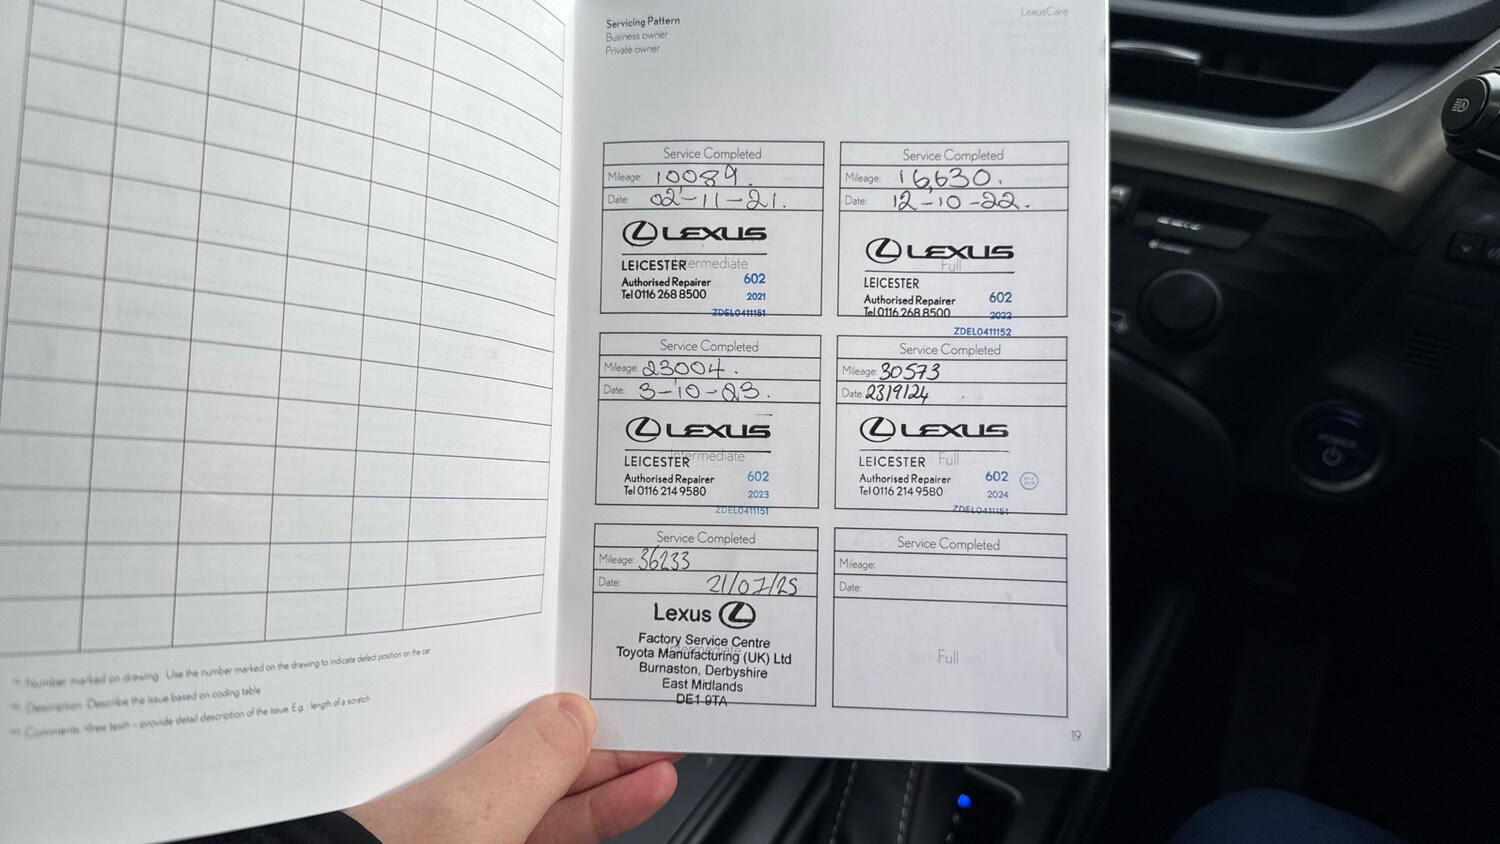 Servicing Pattern
Business owner
Private owner
LexusCare
Service Completed
Mileage: 10089.
Date: 02-11-21.
LEXUS
Intermediate
LEICESTER
Authorised Repairer 602
Tel 0116 268 8500 2021
ZDEL0411151
Service Completed
Mileage: 16,630.
Date: 12-10-22.
LEXUS
Full
LEICESTER
Authorised Repairer 602
Tel 0116 268 8500 2022
ZDEL0411152
Service Completed
Mileage: 23004.
Date: 3-10-23.
LEXUS
Intermediate
LEICESTER
Authorised Repairer 602
Tel 0116 214 9580 2023
ZDEL0411151
Service Completed
Mileage: 30573
Date: 23/9/24
LEXUS
LEICESTER Full
Authorised Repairer 602
Tel 0116 214 9580 2024
ZDEL0411151
Service Completed
Mileage: 36233
Date: 21/07/25
Lexus
Factory Service Centre
Intermediate
Toyota Manufacturing (UK) Ltd
Burnaston, Derbyshire
East Midlands
DE1 9TA
Service Completed
Mileage:
Date:
Full
19
Number marked on drawing: Use the number marked on the drawing to indicate defect position on the car
Description: Describe the issue based on coding table
Comments (free text) – provide detail description of the issue. E.g.: length of a scratch
POWER